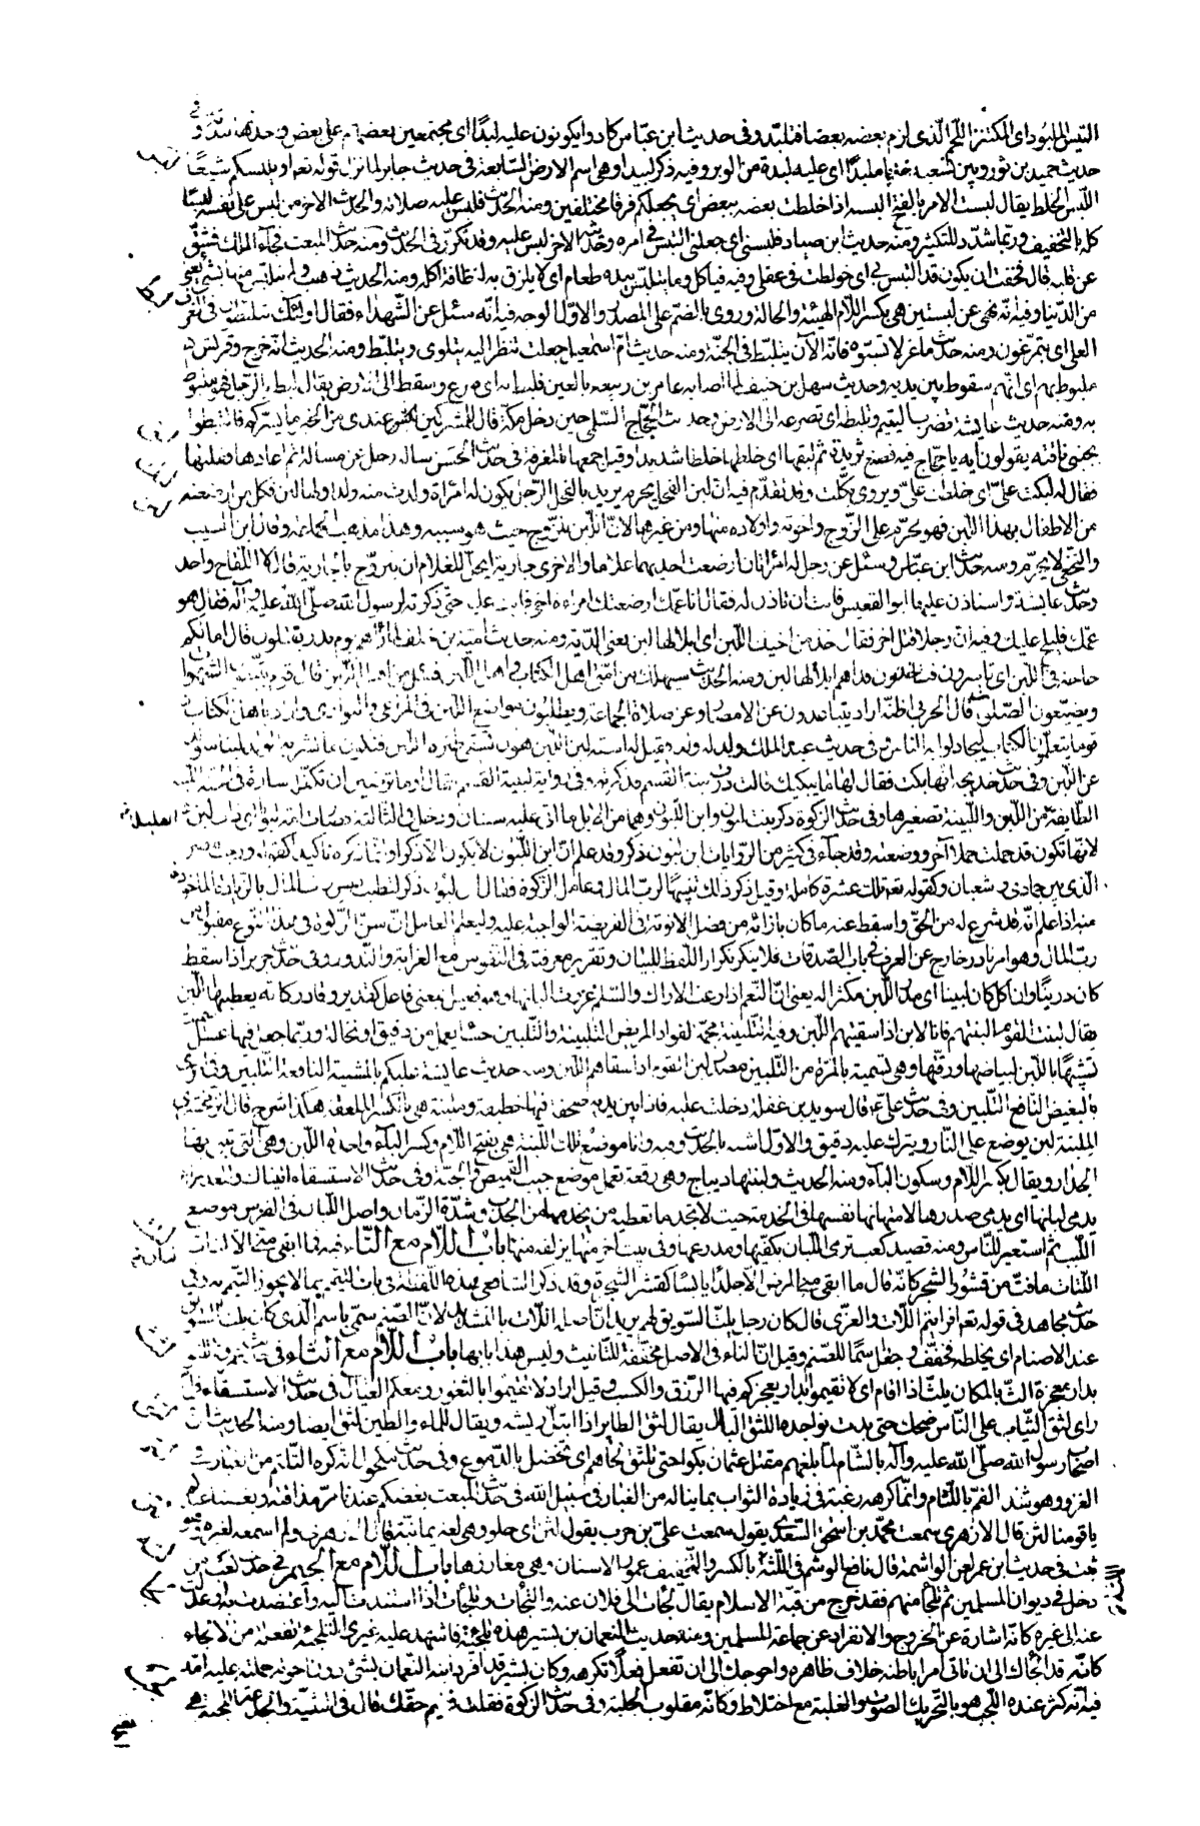 التيس الملبود اى المكتنز اللحم الذى لزم بعضه بعضا فتلبد وفى حديث ابن عباس كادوا يكونون عليه لبدا اى مجتمعين بعضهم على بعض واحدتها لبدة وفى
حديث حميد بن ثور وبين نسعيه خدبا ملبدا اى عليه لبدة من الوبر وفيه ذكر لبيدا وهى اسم الارض السابعة فى حديث جابر لما نزل قوله تعالى او يلبسكم شيعا
اللبس الخلط يقال لبست الامر بالفتح البسه اذا خلطت بعضه ببعض اى يجعلكم فرقا مختلفين ومنه الحديث فلبس عليه صلاته والحديث الاخر من لبس على نفسه لبسا
كله بالتخفيف وربما شدد للتكثير ومنه حديث ابن صياد فلبسنى اى جعلنى التبس فى امره وحديثه الاخر لبس عليه وقد تكرر فى الحديث ومنه حديث المبعث فجآء الملك فشق
عن قلبه قال فخفت ان يكون قد التبس بى اى خولطت فى عقلى وفيه فياكل وما يتلبس بيده طعام اى لا يلزق به لنظافة اكله ومنه الحديث ذهب ولم يتلبس منها بشئ يعنى
من الدنيا وفيه انه نهى عن لبستين هى بكسر اللام الهيئة والحالة وروى بالضم على المصدر والاول الوجه فيه انه سئل عن الشهداء فقال اولئك يتلبطون فى الغرف
العلى اى يتمرغون ومنه حديث ماعز لا تسبوه فانه الآن يتلبط فى الجنة ومنه حديث ام اسمعيل جعلت تنظر اليه يتلوى ويتلبط ومنه الحديث انه خرج وقريش
ملبوط بهم اى انهم سقوط بين يديه وحديث سهل بن حنيف لما اصابه عامر بن ربيعة بالعين فلبط به اى صرع وسقط الى الارض يقال لبط الرجل فهو ملبوط
به ومنه حديث عايشة تضرب اليتيم وتلبطه اى تصرعه الى الارض وحديث الحجاج السلمى حين دخل مكة قال للمشركين عندى من الخبر ما يسركم فالتبطوا
بجنبى ناقته يقولون ايه يا حجاج فيه فصنع ثريدة ثم لبقها اى خلطها خلطا شديدا وقيل جمعها بالمغرفة فى حديث الحسن ساله رجل عن مسالة ثم اعادها فقلبها
فقال له لبكت على اى خلطت على ويروى بكلت وقد تقدم فيه ان لبن الفحل يحرم يريد بالفحل الرجل يكون له امراة ولدت منه ولدا ولها لبن فكل من ارضعته
من الاطفال بهذا اللبن فهو محرم على الزوج واخوته واولاده منها ومن غيرها لان اللبن للزوج حيث هو سببه وهذا مذهب الجماعة وقال ابن المسيب
والنخعى لا يحرم ومنه حديث ابن عباس وسئل عن رجل له امراتان ارضعت احديهما غلاما والاخرى جارية ايحل للغلام ان يتزوج بالجارية قال لا اللقاح واحد
وحديث عايشة واستاذن عليها ابو القعيس فابت ان تاذن له فقال انا عمك ارضعتك امراة اخى فابت عليه حتى ذكرته لرسول الله صلى الله عليه وآله فقال هو
عمك فليلج عليك وفيه ان رجلا قتل اخر فقال خذ من اخيك اللبن اى ابلا لها لبن يعنى الدية ومنه حديث امية بن خلف لما راهم يوم بدر يقتلون قال اما لكم
حاجة فى اللبن اى تاسرون فتاخذون فداهم ابلا لها لبن ومنه الحديث سيهلك من امتى اهل الكتاب واهل اللبن فسئل من اهل اللبن قال قوم يتبعون الشهوات
ويضيعون الصلوة قال الحربى اظنه اراد يتباعدون عن الامصار وعن صلاة الجماعة ويطلبون مواضع اللبن فى المراعى والبوادى واراد باهل الكتاب
قوما يتعلمون الكتاب ليجادلوا به الناس وفى حديث عبد الملك ولد له ولد فقيل له اسقه لبن اللبن هو ان
عن اللبن وفى حديث خديجة انها بكت فقال لها ما يبكيك قالت درت لبنة القسم فذكرته وفى رواية لبينة القسم فقال اوما ترضين ان تكفله سارة فى الجنة اللبنة
الطايفة من اللبن واللبينة تصغيرها وفى حديث الزكوة ذكر بنت لبون وابن اللبون وهما من الابل ما اتى عليه سنتان ودخل فى الثالثة فصارت امه لبونا اى ذات لبن
لانها تكون قد حملت حملا آخر ووضعته وقد جآء فى كثير من الروايات ابن لبون ذكر وقد علم ان ابن اللبون لا يكون الا ذكرا وانما ذكره تاكيدا كقوله ورجب مضر
الذى بين جمادى وشعبان وكقوله تعالى تلك عشرة كاملة وقيل ذكر ذلك تنبيها لرب المال وعامل الزكوة فقال ابن لبون ذكر لتطيب نفس رب المال بالزيادة الماخوذة
منه اذا علم انه قد شرع له من الحق واسقط عنه ما كان بازائه من فضل الانوثة فى الفريضة الواجبة عليه وليعلم العامل ان سن الزكوة فى هذا النوع مقبول من
رب المال وهو امر نادر خارج عن العرف فى باب الصدقات فلا ينكر تكرار اللفظ للبيان وتقرير معرفته فى النفوس مع الغرابة والندور وفى حديث جرير اذا سقط
كان درينا وان اكل كان لبينا اى مدرا للبن مكثرا له يعنى ان النعم اذا رعت الاراك والسلم غزرت البانها وهو فعيل بمعنى فاعل كقدير وقادر كانه يعطيها اللبن
يقال لبنت القوم البنهم فانا لابن اذا سقيتهم اللبن وفيه التلبينة مجمة لفؤاد المريض التلبينة والتلبين حساء يعمل من دقيق او نخالة وربما جعل فيها عسل
تشبيها باللبن لبياضها ورقتها وهى تسمية بالمرة من التلبين مصدر لبن القوم اذا سقاهم اللبن ومنه حديث عايشة عليكم بالمشنيئة النافعة التلبين وفى اخرى
بالبغيض النافع التلبين وفى حديث على ع قال سويد بن غفلة دخلت عليه فاذا بين يديه صحفة فيها خطيفة وملبنة هى بالكسر الملعقة هكذا شرح قال الزمخشرى
الملبنة لبن يوضع على النار ويترك عليه دقيق والاول اشبه بالحديث وفيه وانا موضع تلك اللبنة هى بفتح اللام وكسر البآء واحدة اللبن وهى التى يبنى بها
الجدار ويقال بكسر اللام وسكون البآء ومنه الحديث ولبنتها ديباج وهى رقعة تعمل موضع جيب القميص والجبة وفى حديث الاستسقاء اتيناك والعذراء
يدمى لبانها اى يدمى صدرها لامتهانها نفسها فى الخدمة حيث لا تجد ما تعطيه من يخدمها من الجدب وشدة الزمان واصل اللبان فى الفرس موضع
اللبب ثم استعير للناس ومنه قصيد كعب ترمى اللبان بكفيها ومدرعها وفى بيت اخر منها يزلقه منها باب اللام مع التاء فيه فما ابقى منى الا لتاتا
اللتات ما فت من قشور الشجر كانه قال ما ابقى منى المرض الا جلدا يابسا كقشر الشجرة وقد ذكر الشافعى هذه اللفظة فى باب التيمم بما لا يجوز التيمم به وفى
حديث مجاهد فى قوله تعالى افرايتم اللات والعزى قال كان رجل يلت السويق لهم يريد ان اصله اللات بالتشديد لان الصنم سمى باسم الذى كان يلت السويق
عند الاصنام اى يخلطه فخفف وجعل اسما للصنم وقيل ان التاء فى الاصل مخففة للتانيث وليس هذا بابها باب اللام مع الثاء فى حديث عمر ولا تلثوا
بدار معجزة الث بالمكان يلث اذا اقام اى لا تقيموا بدار يعجزكم فيها الرزق والكسب وقيل اراد لا تقيموا بالثغور ومعكم العيال فى حديث الاستسقاء فلما
راى لثق الثياب على الناس ضحك حتى بدت نواجذه اللثق البلل يقال لثق الطاير اذا ابتل ريشه ويقال للماء والطين لثق ايضا ومنه الحديث ان
اصحاب رسول الله صلى الله عليه وآله بالشام لما بلغهم مقتل عثمان بكوا حتى تلثق لحاهم اى تخضل بالدموع وفى حديث مكحول انه كره التلثم من الغبار فى
الغزو وهو شد الفم باللثام وانما كرهه رغبة فى زيادة الثواب بما يناله من الغبار فى سبيل الله فى حديث المبعث بغضكم عندنا مر مذاقته وبغضنا عندكم
يا قومنا لثن قال الازهرى سمعت محمد بن اسحق السعدى يقول سمعت على بن حرب يقول لثن اى حلو وهى لغة يمانية قال الازهرى ولم اسمعه لغيره وهو
ثبت فى حديث ابن عمر لعن الواشمة قال نافع الوشم فى اللثة اللثة بالكسر والتخفيف عمور الاسنان وهى مغارزها باب اللام مع الجيم فى حديث كعب من
دخل فى ديوان المسلمين ثم تلجا منهم فقد خرج من قبة الاسلام يقال لجات الى فلان عنه والتجات وتلجات اذا استندت اليه واعتضدت به او عدلت
عنه الى غيره كانه اشارة عن الخروج والانفراد عن جماعة المسلمين ومنه حديث النعمان بن بشير هذه تلجئة فاشهد عليه غيرى التلجئة تفعلة من الالجاء
كانه قد الجاك الى ان تاتى امرا باطنه خلاف ظاهره واحوجك الى ان تفعل فعلا تكرهه وكان بشير قد افرد ابنه النعمان بشئ دون اخوته حملته عليه امه
فيه انه كثر عنده اللجب هو بالتحريك الصوت والغلبة مع اختلاط وكانه مقلوب الجلبة وفى حديث الزكوة فقلت فيم حقك قال فى الثنية والجذعة اللجبة هى